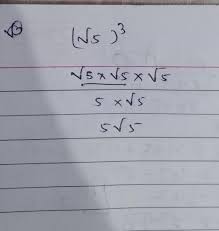 (√5)³
√5 × √5 × √5
5 × √5
5√5